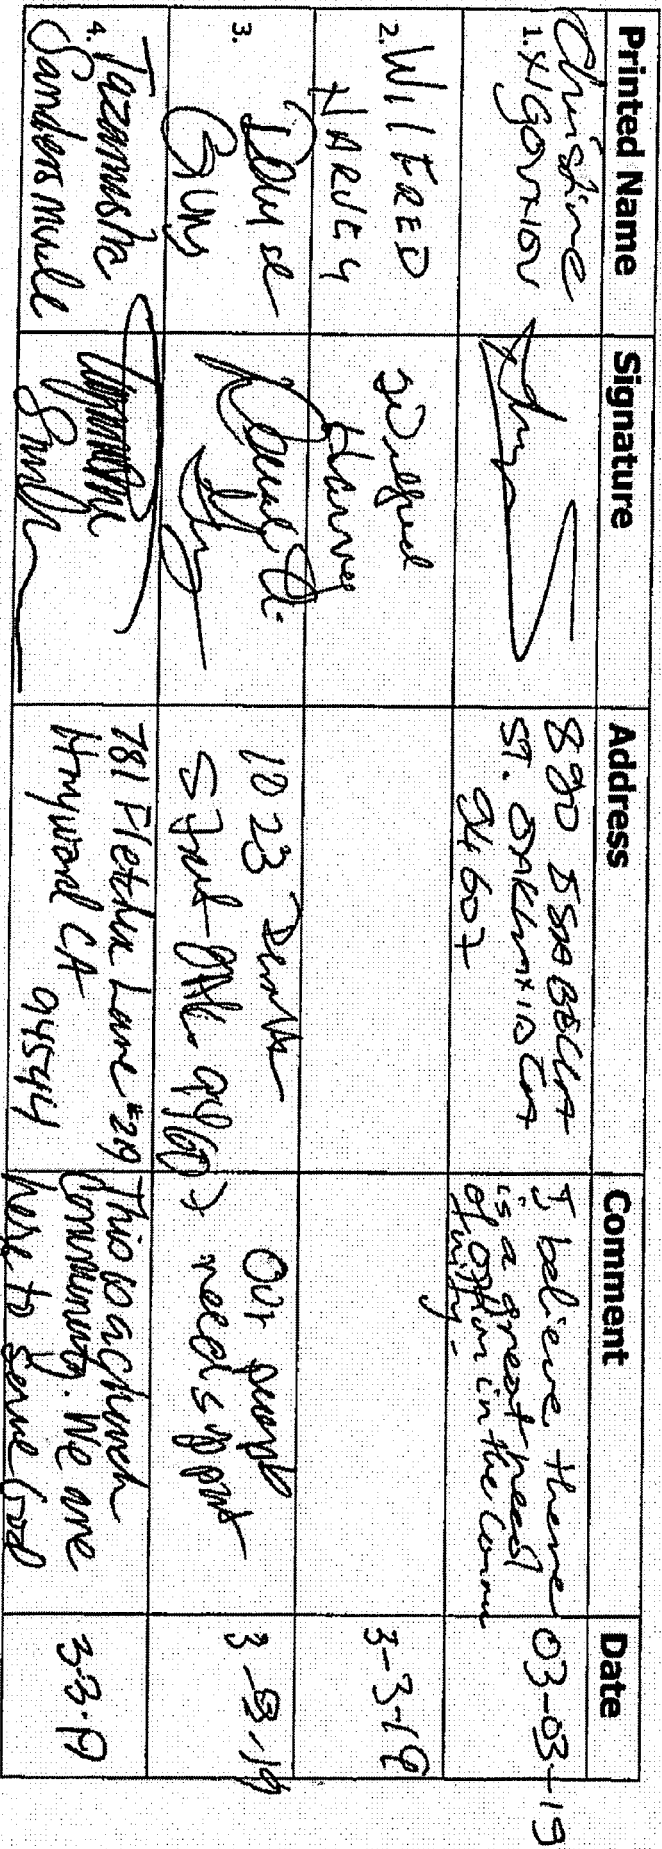 Printed Name Signature Address Comment Date
1. Christine
890 ISABELLA
ST. OAKLAND CA
94607
I believe there
is a great need
of option in the Commu
nity.
03-03-19
2. WILFRED
HARVEY
Wilfred
Harvey
3-3-19
3. Denise
Guy
1023
Street Oak 94607
Our people
need support
3-3-19
4. Tazamisha
Sanders
781 Fletcher Lane #219
Hayward CA
94544
This is a church
Community. We are
here to serve God
3-3-19